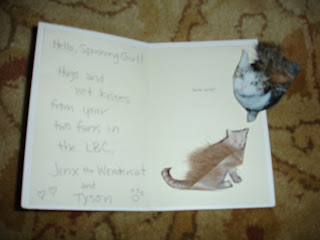 Hello, Spinning Girl!
Hugs and
wet kisses
from your
two fans in
the LBC,
Jinx the Wendercat
and
Tyson